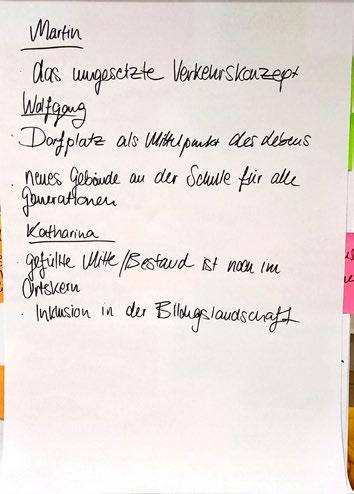 Martin
· das umgesetzte Verkehrskonzept
Wolfgang
· Dorfplatz als Mittelpunkt des Lebens
· neues Gebäude an der Schule für alle
Generationen
Katharina
· gefüllte Mitte/Bestand ist noch im
Ortskern
· Inklusion in der Bildungslandschaft